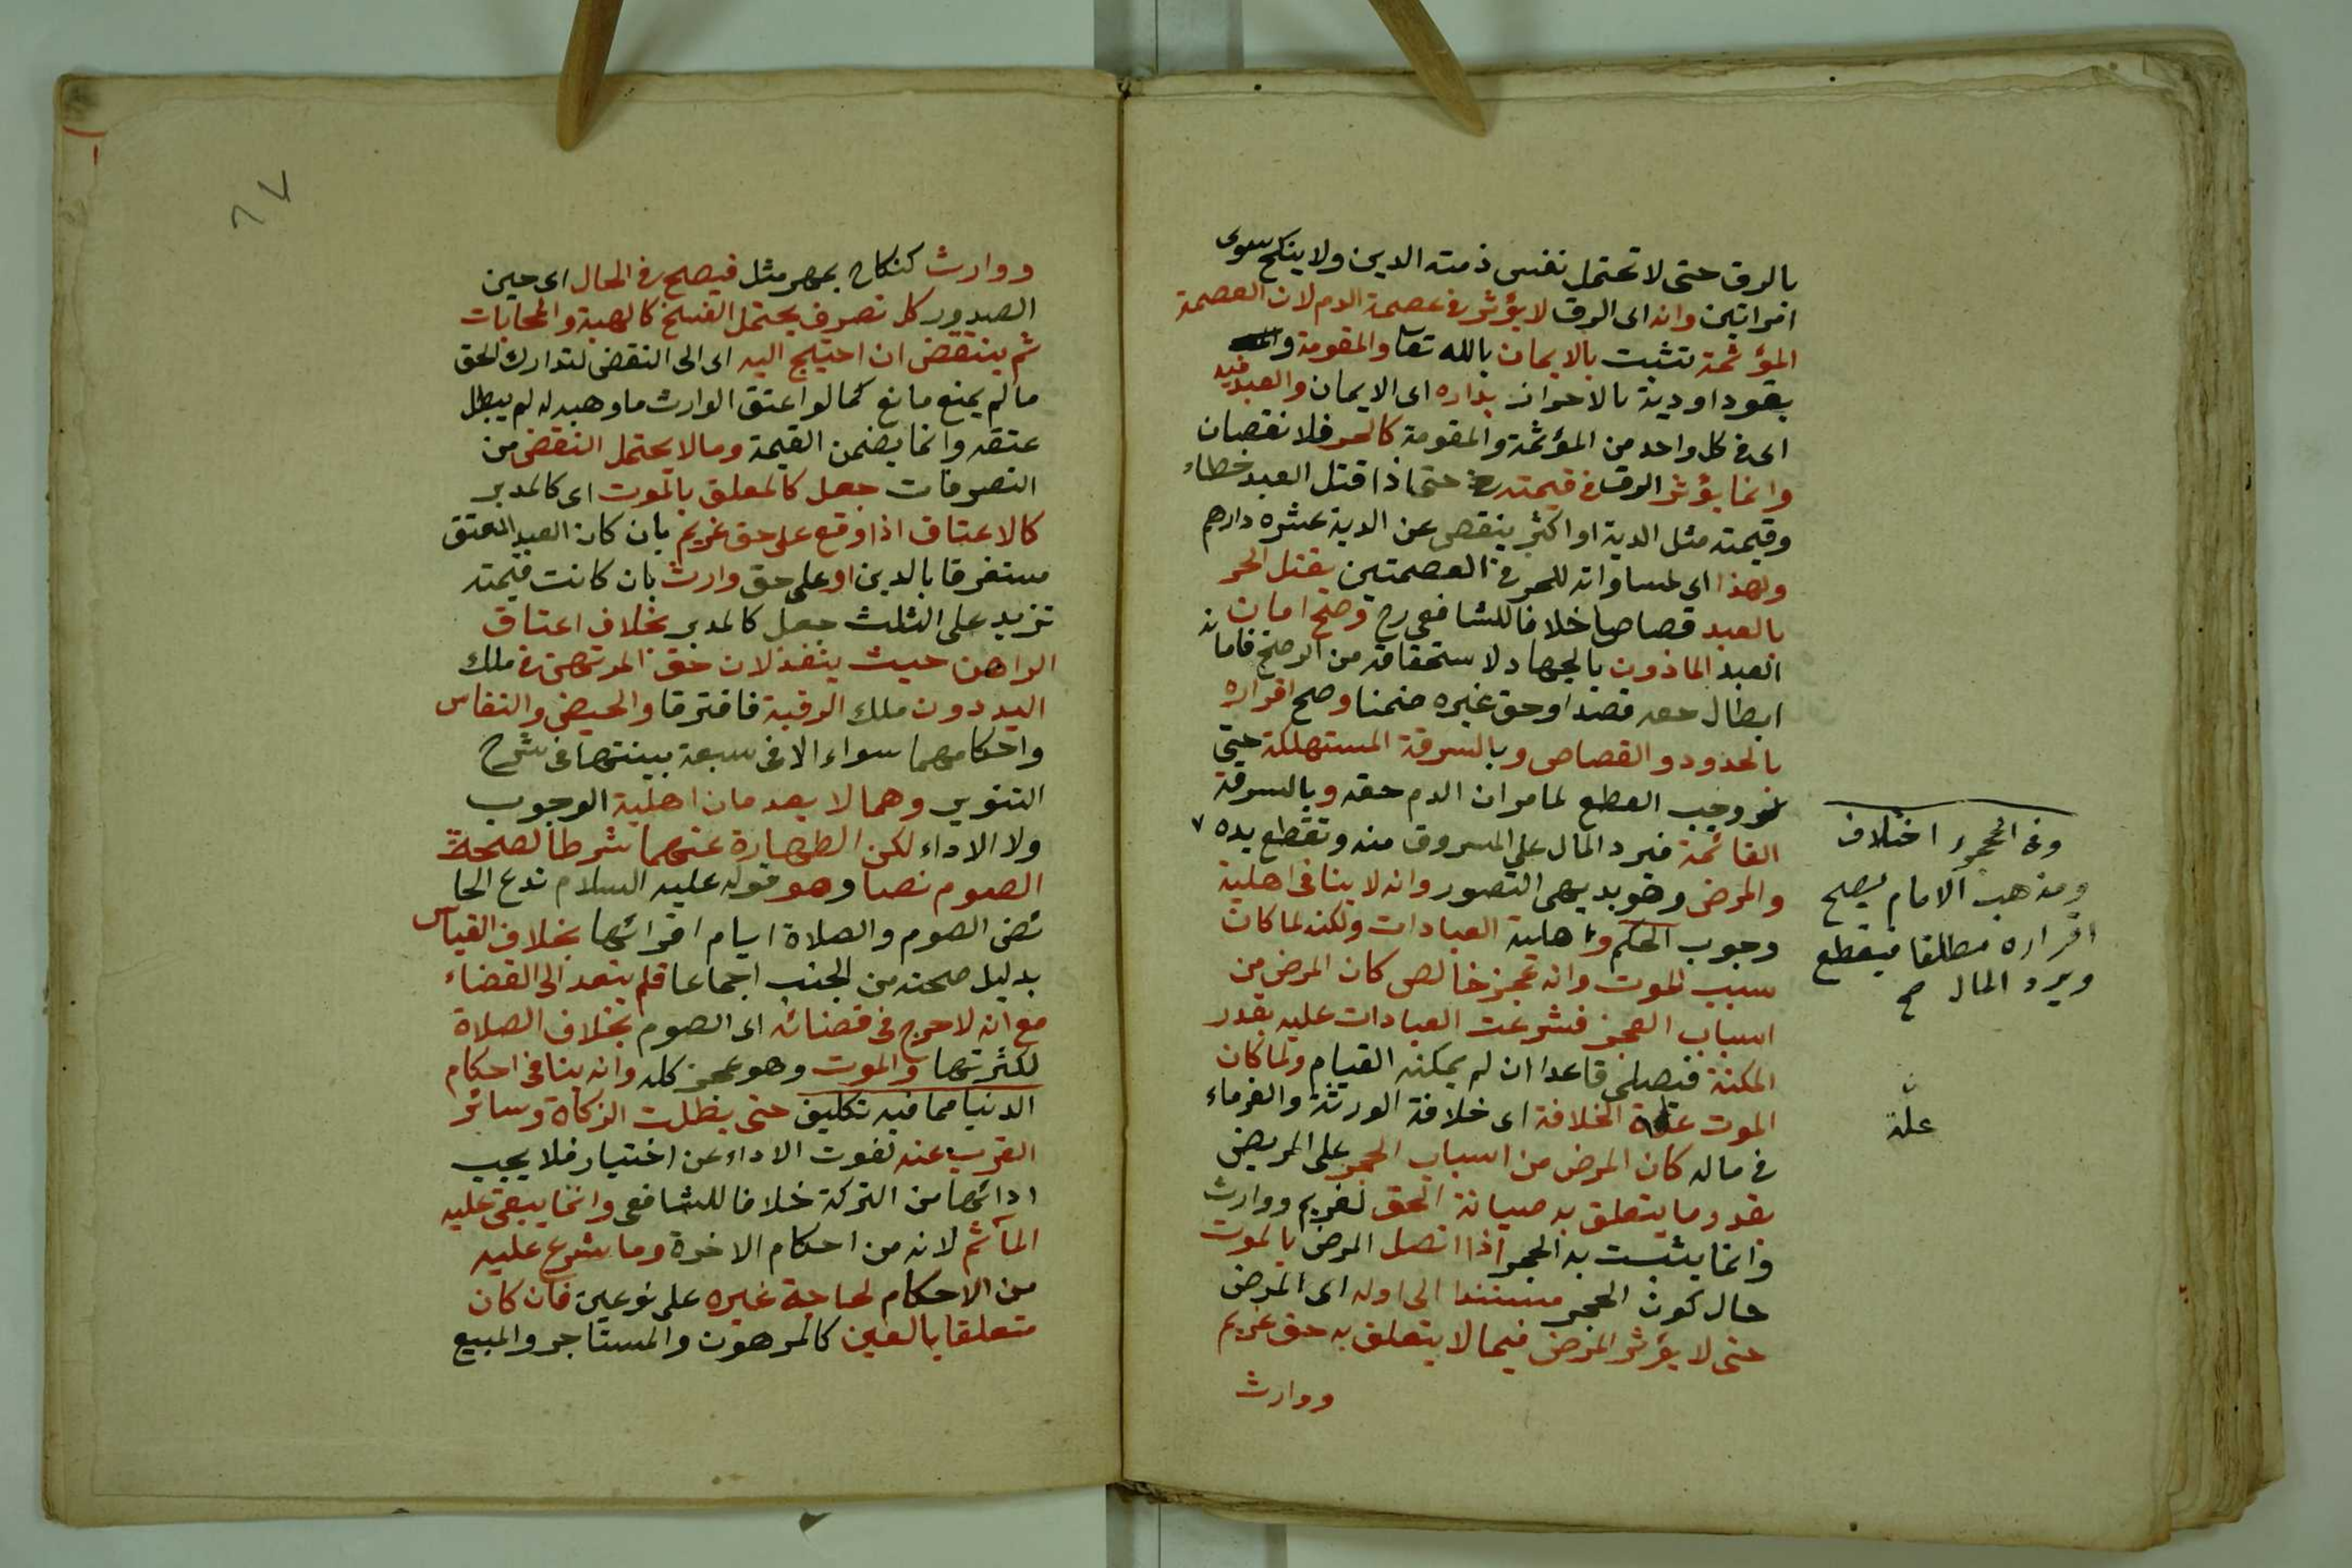 بالرق حتى لا تحتمل نفس ذمته الدين ولا ينكح سوى
امراتين وانه اى الرق لا يؤثر فى عصمة الدم لان العصمة
المؤثمة تثبت بالايمان بالله تعا والمقومة
بقود او دية بالاحراز بداره اى الايمان والعبد فيه
اى فى كل واحد من المؤثمة والمقومة كالحر فلا نقصان
وانما يؤثر الرق فى قيمته حتى اذا قتل العبد خطاء
وقيمته مثل الدية او اكثر ينقص عن الدية عشرة دارهم
ولهذا اى لمساواته للحر فى العصمتين يقتل الحر
بالعبد قصاصا خلافا للشافعى رح وصح امان
العبد الماذون بالجهاد لاستحقاقه من الرضخ فامانه
ابطال حقه قصدا وحق غيره ضمنا وصح اقراره
بالحدود والقصاص وبالسرقة المستهلكة حتى
وجب القطع لما مر ان الدم حقه وبالسرقة
القائمة فيرد المال على المسروق منه وتقطع يده ٧
والمرض وهو بديهى التصور وانه لا ينافى اهلية
وجوب الحكم واهلية العبادات ولكنه لما كان
سبب الموت وانه عجز خالص كان المرض من
اسباب العجز فشرعت العبادات عليه بقدر
المكنة فيصلى قاعدا ان لم يمكنه القيام ولما كان
الموت علة الخلافة اى خلافة الورثة والغرماء
فى ماله كان المرض من اسباب الحجر على المريض
بقدر ما يتعلق به صيانة الحق لغريم ووارث
وانما يثبت به الحجر اذا اتصل المرض بالموت
حال كون الحجر مستندا الى اوله اى المرض
حتى لا يؤثر المرض فيما لا يتعلق به حق غريم
ووارث
وفى المحجور اختلاف
ومذهب الامام يصح
اقراره مطلقا فيقطع
ويرد المال صح
ن
علة
٦٧
ووارث كنكاح بمهر مثل فيصح فى الحال اى حين
الصدور كل تصرف يحتمل الفسخ كالهبة والمحابات
ثم ينتقض ان احتيج اليه اى الى النقض لتدارك الحق
ما لم يمنع مانع كما لو اعتق الوارث ما وهبه له لم يبطل
عتقه وانما يضمن القيمة وما لا يحتمل النقض من
التصرفات جعل كالمعلق بالموت اى كالمدبر
كالاعتاق اذا وقع على حق غريم بان كان العبد المعتق
مستغرقا بالدين او على حق وارث بان كانت قيمته
تزيد على الثلث جعل كالمدبر بخلاف اعتاق
الراهن حيث ينفذ لان حق المرتهن فى ملك
اليد دون ملك الرقبة فافترقا والحيض والنفاس
واحكامهما سواء الا فى سبعة بينتها فى شرح
التنوير وهما لا يعدمان اهلية الوجوب
ولا الاداء لكن الطهارة عنهما شرط لصحة
الصوم نصا وهو قوله عليه السلام تدع الحا
ئض الصوم والصلاة ايام اقرائها بخلاف القياس
بدليل صحته من الجنب اجماعا فلم يتعد الى القضاء
مع انه لا حرج فى قضائه اى الصوم بخلاف الصلاة
لكثرتها والموت وهو عجز كله وانه ينافى احكام
الدنيا مما فيه تكليف حتى بطلت الزكاة وسائر
القرب عنه لفوت الاداء عن اختيار فلا يجب
ادائها من التركة خلافا للشافعى وانما يبقى عليه
المآثم لانه من احكام الاخرة وما شرع عليه
من الاحكام لحاجة غيره على نوعين فان كان
متعلقا بالعين كالمرهون والمستاجر والمبيع